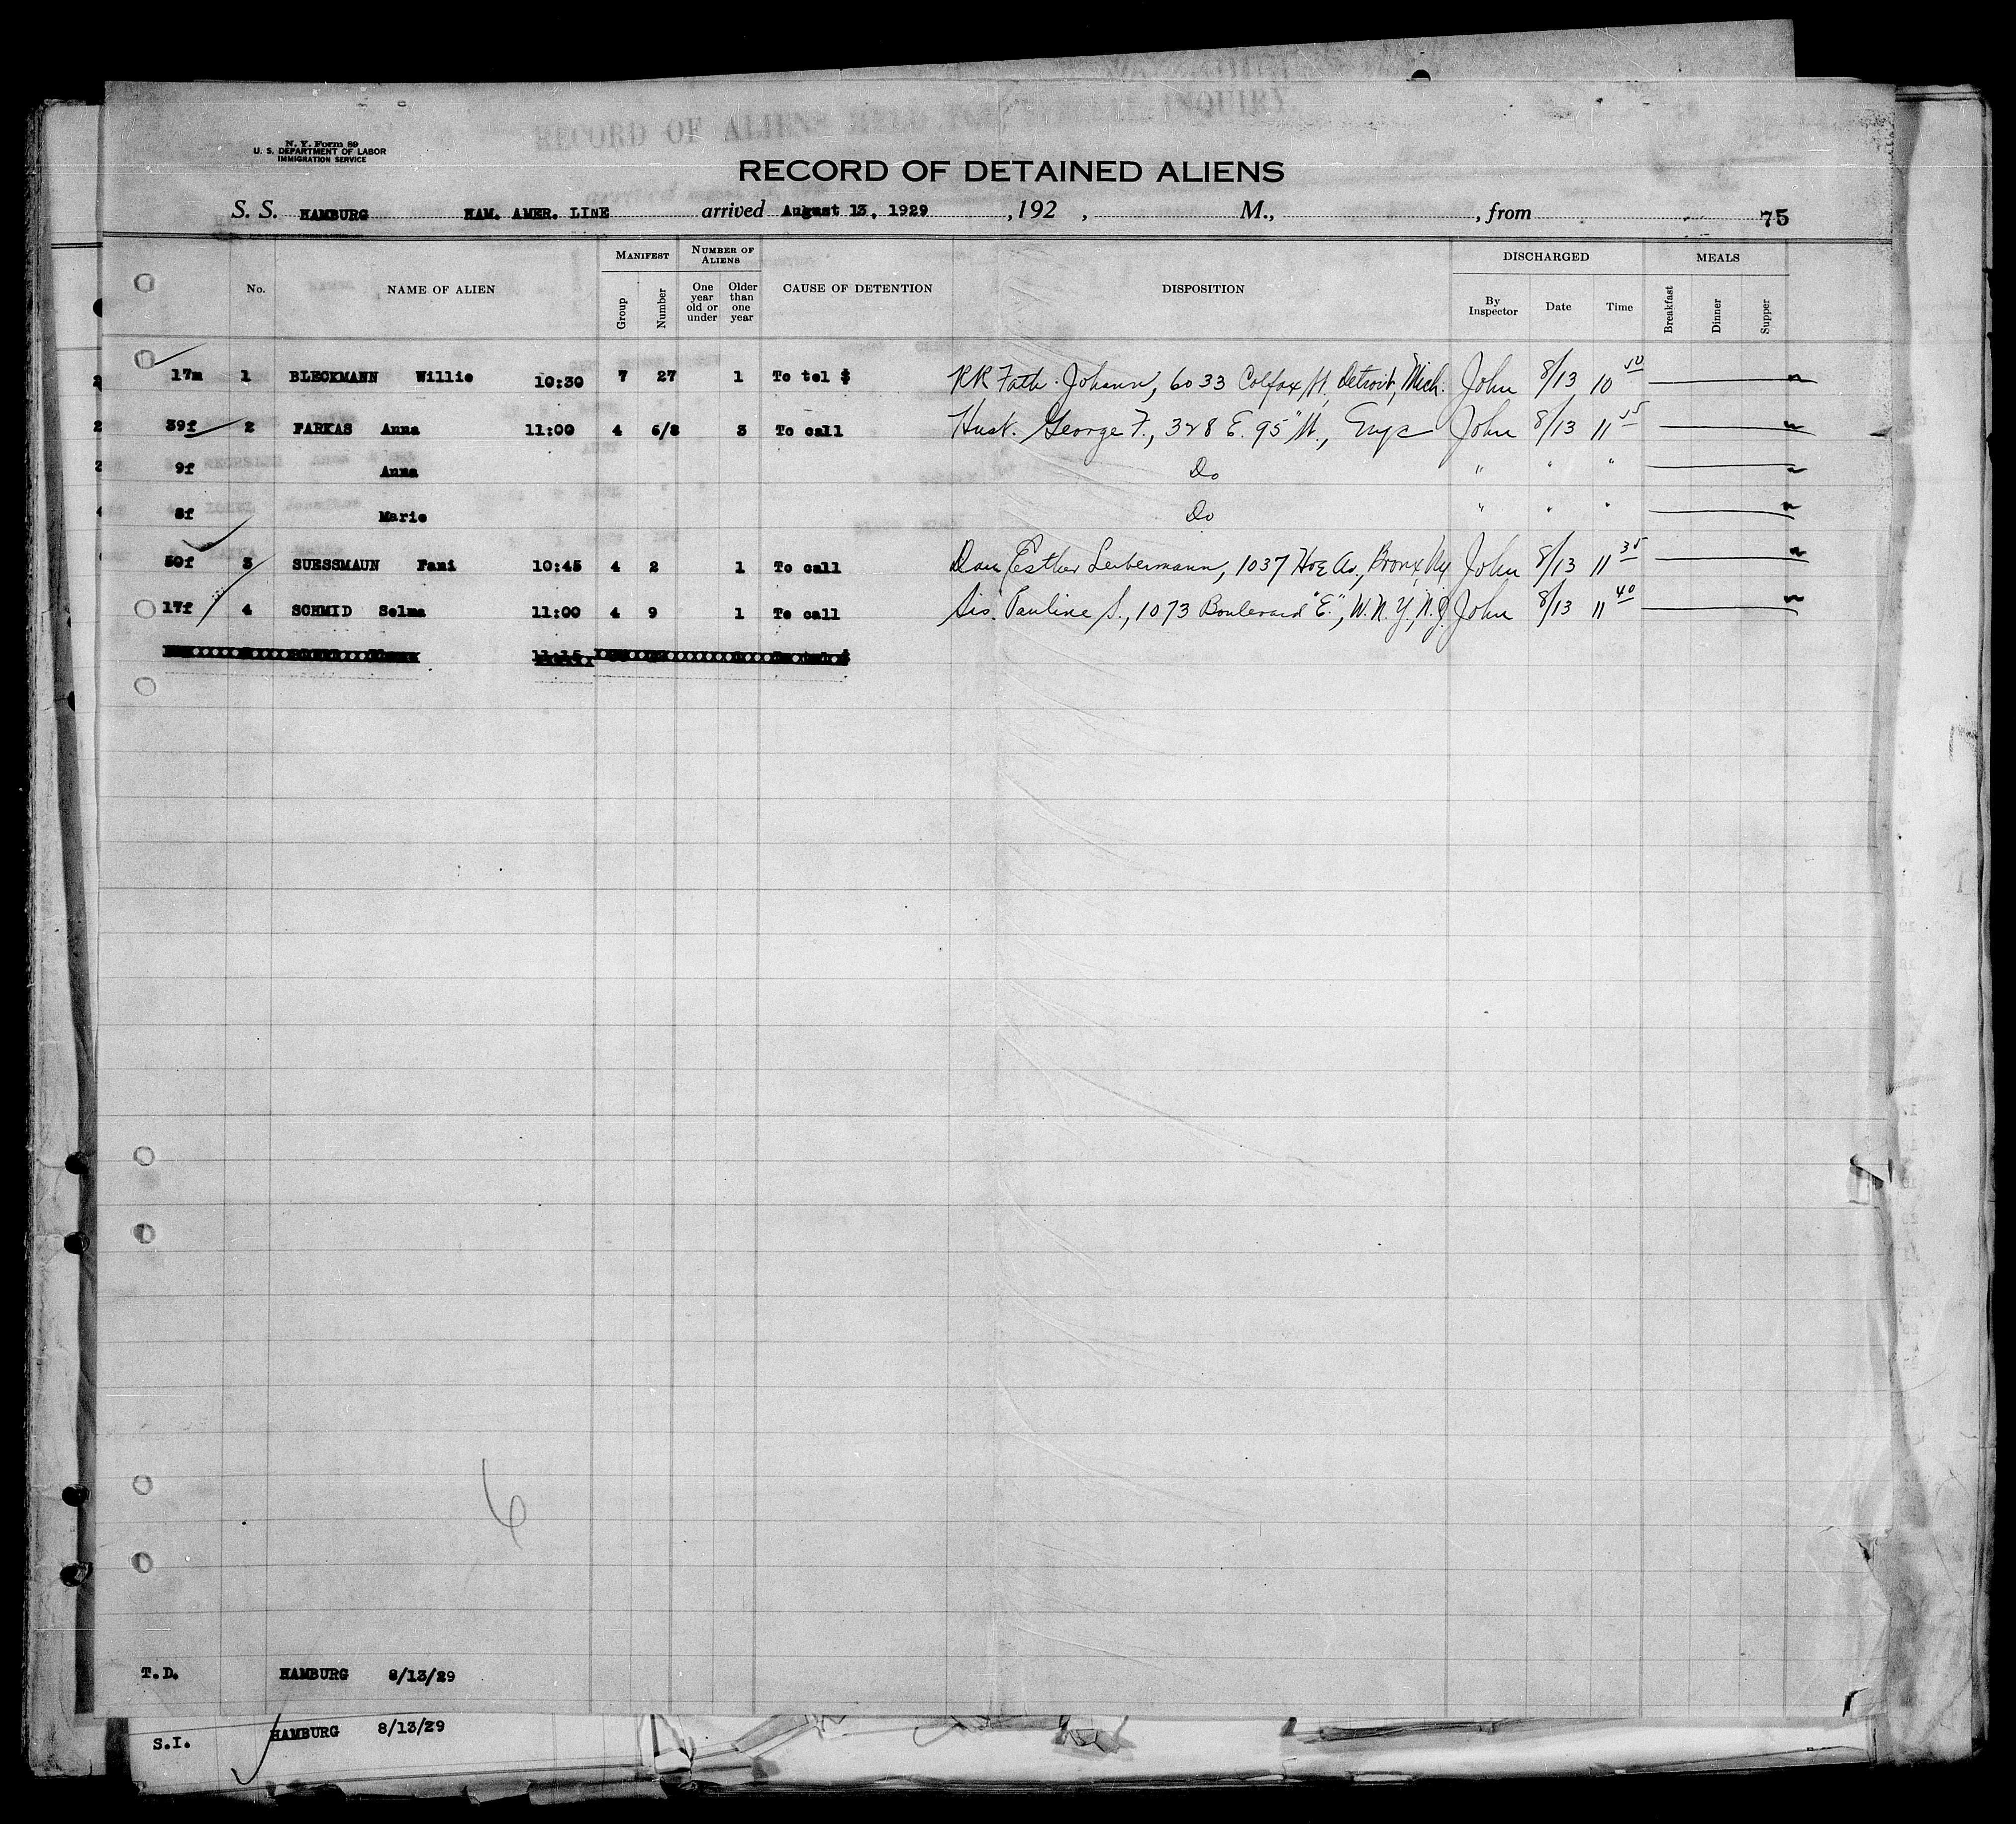 RECORD OF ALIENS HELD FOR SPECIAL INQUIRY
N. Y. Form 89
U. S. DEPARTMENT OF LABOR
IMMIGRATION SERVICE
RECORD OF DETAINED ALIENS
S. S. HAMBURG HAM. AMER. LINE arrived August 13, 1929 , 192 , M., , from 75
No. NAME OF ALIEN MANIFEST Group Number NUMBER OF ALIENS One year old or under Older than one year CAUSE OF DETENTION DISPOSITION DISCHARGED By Inspector Date Time MEALS Breakfast Dinner Supper
17m 1 BLECKMANN Willie 10:30 7 27 1 To tel $ RR Fath. Johann, 6033 Colfax St, Detroit, Mich. John 8/13 10 50
39f 2 FARKAS Anna 11:00 4 6/8 3 To call Husb. George F., 328 E. 95" St., John 8/13 11
9f Anna Do " " "
8f Marie Do " " "
50f 3 SUESSMAUN Fani 10:45 4 2 1 To call Dau Esther Leibermann, 1037 Hoe Av., Bronx, Ny John 8/13 11 35
17f 4 SCHMID Selma 11:00 4 9 1 To call Sis. Pauline S., 1073 Boulevard "E.", W. N. Y., N. J. John 8/13 11 40
11:15
6
T.D. HAMBURG 8/13/29
S.I. HAMBURG 8/13/29